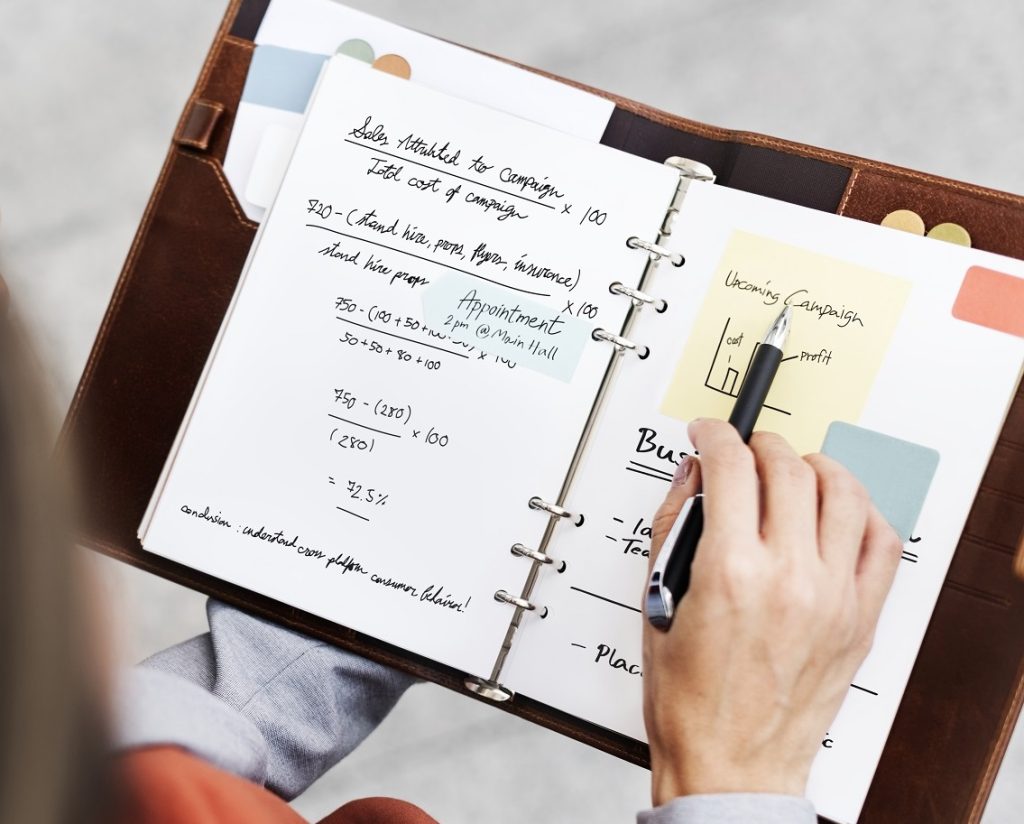 Sales Attributed to Campaign
Total cost of campaign × 100
720 - (stand hire, props, flyers, insurance)
stand hire props × 100
Appointment
2pm @ Main Hall
750 - (100 + 50 + 100
50 + 50 + 80 + 100 × 100
750 - (280)
(280) × 100
= 72.5%
conclusion : understand cross platform consumer behavior!
Upcoming Campaign
cost
Profit
Bus
-
- Tea
- Plac